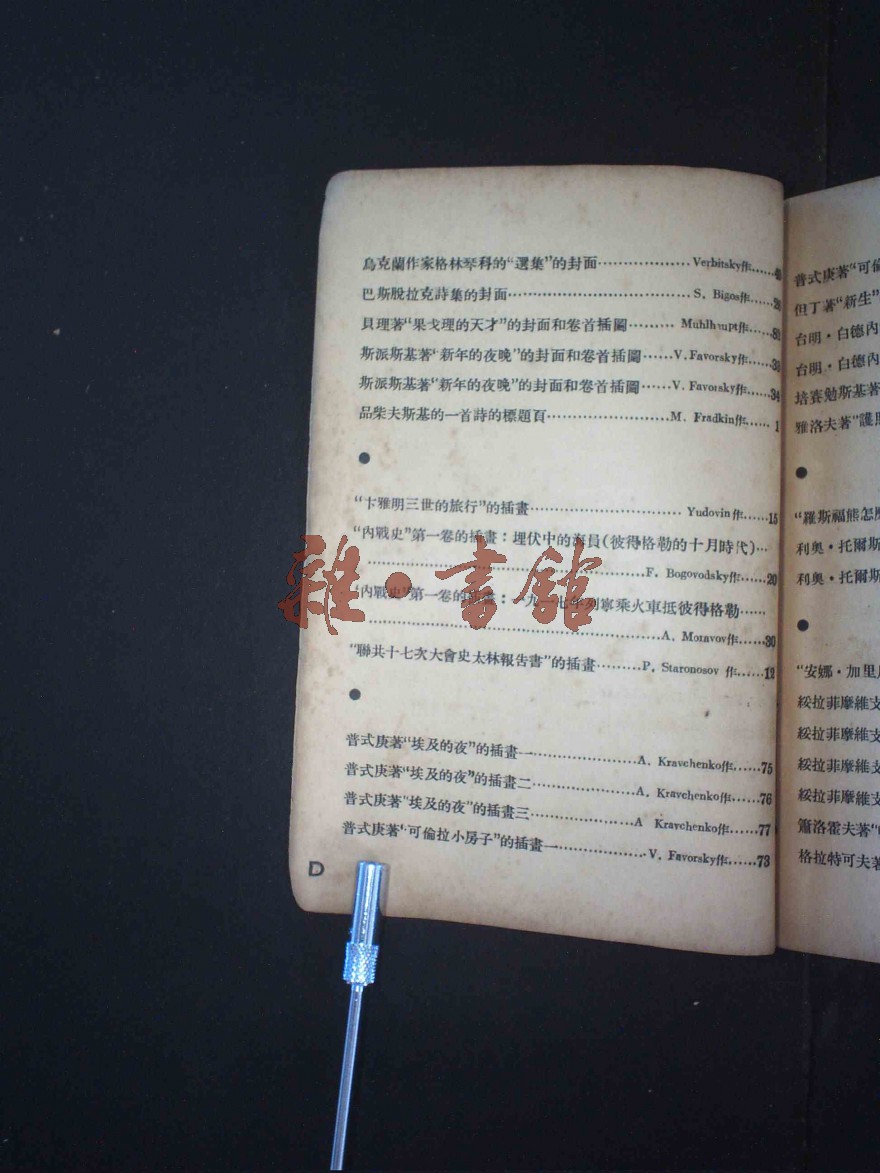 烏克蘭作家格林琴科的“選集”的封面………………Verbitsky作……
巴斯脫拉克詩集的封面………………S. Bigos作……
貝理著“果戈理的天才”的封面和卷首插圖………作……
斯派斯基著“新年的夜晚”的封面和卷首插圖……V. Favorsky作……33
斯派斯基著“新年的夜晚”的封面和卷首插圖……V. Favorsky作……34
品柴夫斯基的一首詩的標題頁………………M. Fradkin作……1
●
“卞雅明三世的旅行”的插畫………………Yudovin作……15
“內戰史”第一卷的插畫：埋伏中的海員（彼得格勒的十月時代）…
………………F. Bogovodsky作……20
“內戰史”第一卷的插畫：一九一七年列寧乘火車抵彼得格勒……
………………A. Moravov作……30
“聯共十七次大會史太林報告書”的插畫………P. Staronosov 作……12
●
普式庚著“埃及的夜”的插畫一………………A. Kravchenko作……75
普式庚著“埃及的夜”的插畫二………………A. Kravchenko作……76
普式庚著“埃及的夜”的插畫三………………A Kravchenko作……77
普式庚著“可倫拉小房子”的插畫一………………V. Favorsky作……73
D
普式庚著“可倫
但丁著“新生”
台明・白德內
台明・白德內
培賽勉斯基著
雅洛夫著“護照
●
“羅斯福熊怎
利奧・托爾斯
利奧・托爾斯
●
“安娜・加里
綏拉菲摩維支
綏拉菲摩維支
綏拉菲摩維支
綏拉菲摩維支
簫洛霍夫著“
格拉特可夫著
雜・書館